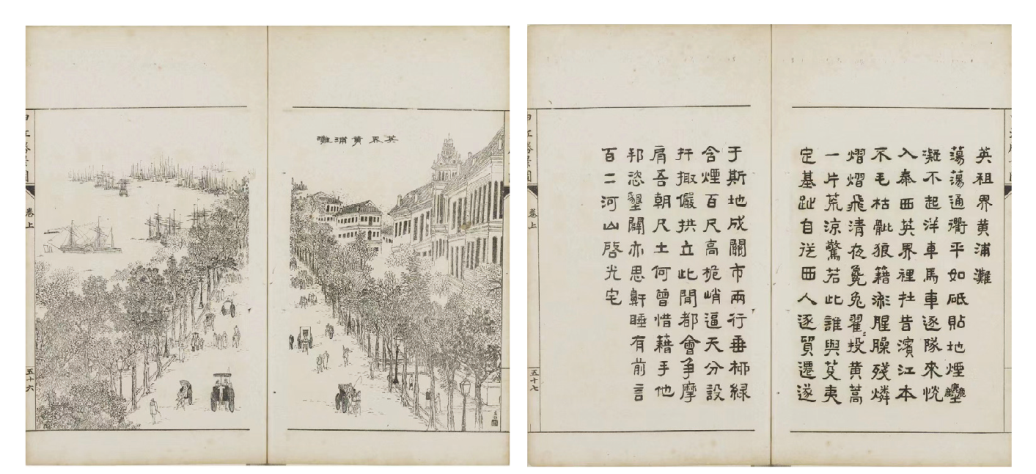 英界黃浦灘
卷上
五十六
英租界黃浦灘
蕩蕩通衢平如砥貼地煙塵
凝不起洋車馬車逐隊來恍
入泰西英界裡扗昔濱江本
不毛枯骴狼藉漸腥臊殘燐
熠熠飛清夜毚兔翟〻投黃蒿
一片荒涼驚若此誰與芟夷
定基趾自從西人逐貿遷遂
于斯地成闤市兩行垂栁綠
含煙百尺高桅峭逼天分設
掫儼拱立此間都會争摩
肩吾朝尺土何曾惜藉手他
邦恣墾闢亦思鼾睡有前言
百二河山啓光宅
卷上
五十七